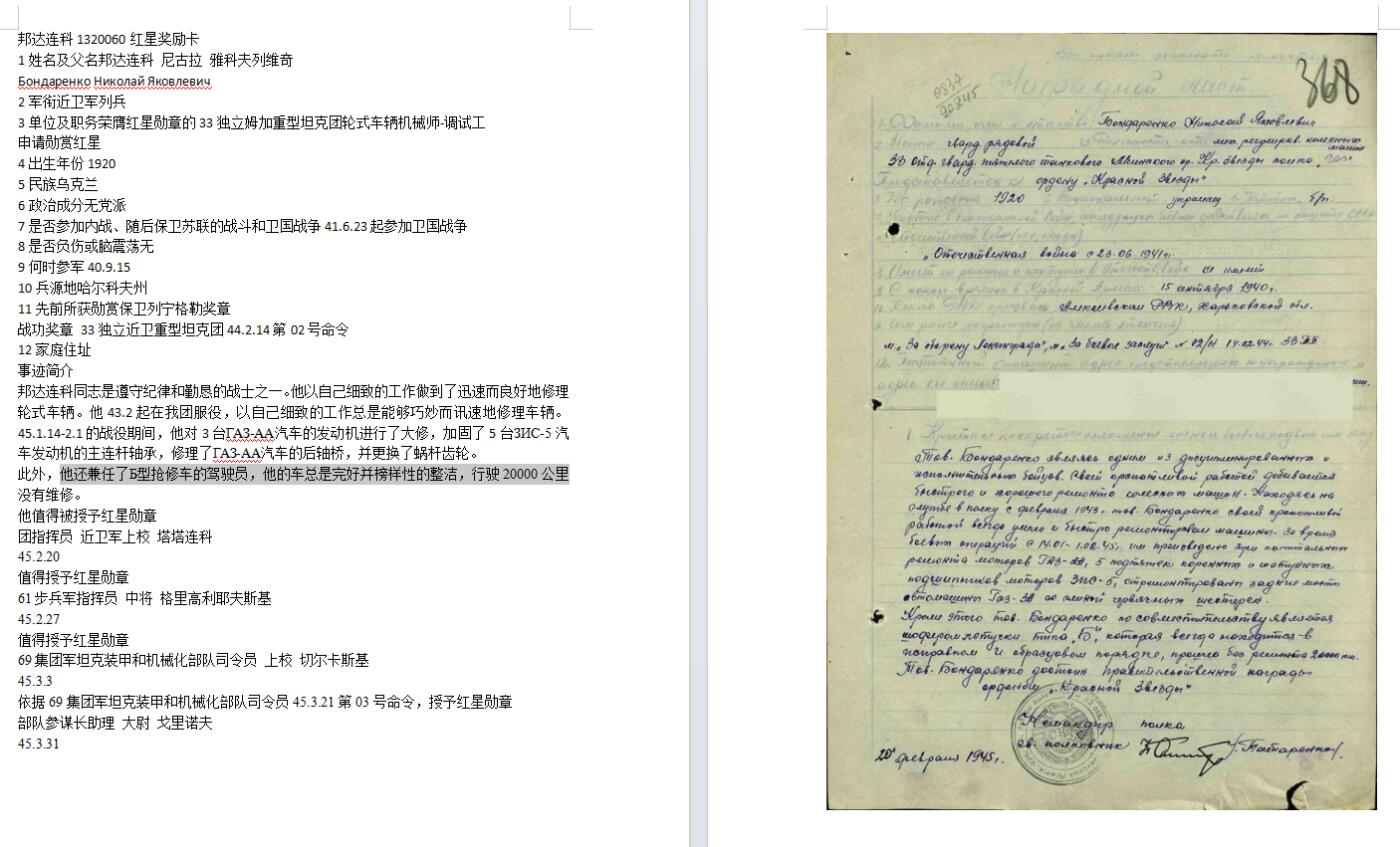 邦达连科 1320060 红星奖励卡
1 姓名及父名邦达连科 尼古拉 雅科夫列维奇
Бондаренко Николай Яковлевич
2 军衔近卫军列兵
3 单位及职务荣膺红星勋章的 33 独立姆加重型坦克团轮式车辆机械师-调试工
申请勋赏红星
4 出生年份 1920
5 民族乌克兰
6 政治成分无党派
7 是否参加内战、随后保卫苏联的战斗和卫国战争 41.6.23 起参加卫国战争
8 是否负伤或脑震荡无
9 何时参军 40.9.15
10 兵源地哈尔科夫州
11 先前所获勋赏保卫列宁格勒奖章
战功奖章 33 独立近卫重型坦克团 44.2.14 第 02 号命令
12 家庭住址
事迹简介
邦达连科同志是遵守纪律和勤恳的战士之一。他以自己细致的工作做到了迅速而良好地修理
轮式车辆。他 43.2 起在我团服役，以自己细致的工作总是能够巧妙而讯速地修理车辆。
45.1.14-2.1 的战役期间，他对 3 台ГАЗ-АА汽车的发动机进行了大修，加固了 5 台ЗИС-5 汽
车发动机的主连杆轴承，修理了ГАЗ-АА汽车的后轴桥，并更换了蜗杆齿轮。
此外，他还兼任了Б型抢修车的驾驶员，他的车总是完好并榜样性的整洁，行驶 20000 公里
没有维修。
他值得被授予红星勋章
团指挥员 近卫军上校 塔塔连科
45.2.20
值得授予红星勋章
61 步兵军指挥员 中将 格里高利耶夫斯基
45.2.27
值得授予红星勋章
69 集团军坦克装甲和机械化部队司令员 上校 切尔卡斯基
45.3.3
依据 69 集团军坦克装甲和机械化部队司令员 45.3.21 第 03 号命令，授予红星勋章
部队参谋长助理 大尉 戈里诺夫
45.3.31
368
Наградной лист
1. Фамилия, имя и отчество Бондаренко Николай Яковлевич
гвард. рядовой мех. регулиров. колесных
машин
33 отд. гвард. тяжелого танкового Мгинского ор. Кр. Звезды полка
Представляется к ордену „Красной Звезды"
1920 украинец б/п.
„Отечественная война с 23.06.1941г.
не имеет
15 сентября 1940г.
РВК, Харьковской обл.
м. „За оборону Ленинграда", м. „За боевые заслуги" № 02/н 14.02.44.
Тов. Бондаренко является одним из дисциплинированных и
исполнительных бойцов. Своей кропотливой работой добивается
быстрого и хорошего ремонта колесных машин. Находясь на
службе в полку с февраля 1943г. тов. Бондаренко своей кропотливой
работой всегда умело и быстро ремонтировал машины. За время
боевых операций с 14.01-1.02.45г. им произведено три капитальных
ремонта моторов ГАЗ-АА, 5 подтяжек коренных и шатунных
подшипников моторов ЗИС-5, отремонтированы задние мосты
автомашины Газ-АА со сменой червячных шестерен.
Кроме этого тов. Бондаренко по совместительству является
шофером летучки типа „Б", которая всегда находится в
исправном и образцовом порядке, прошла без ремонта 20000 км.
Тов. Бондаренко достоин правительственной награды
орденом „Красной Звезды"
Командир полка
гв. полковник /Татаренко/
20 февраля 1945г.